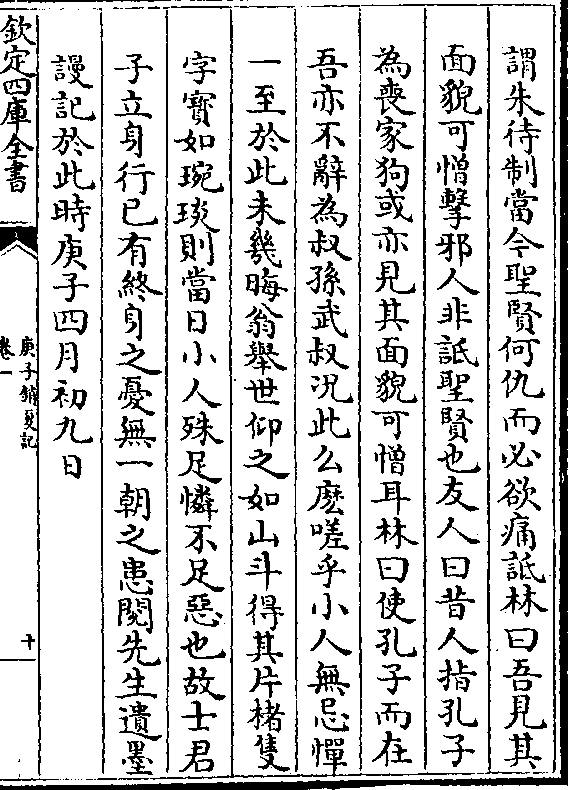 謂朱待制當今聖賢何仇而必欲痛詆林曰吾見其
面貌可憎擊邪人非詆聖賢也友人曰昔人指孔子
為喪家狗或亦見其面貌可憎耳林曰使孔子而在
吾亦不辭為叔孫武叔況此么麽嗟乎小人無忌憚
一至於此未幾晦翁舉世仰之如山斗得其片楮隻
字寳如琬琰則當日小人殊足憐不足惡也故士君
子立身行已有終身之憂無一朝之患閱先生遺墨
謾記於此時庚子四月初九日
欽定四庫全書
庚子銷夏記
卷一
十